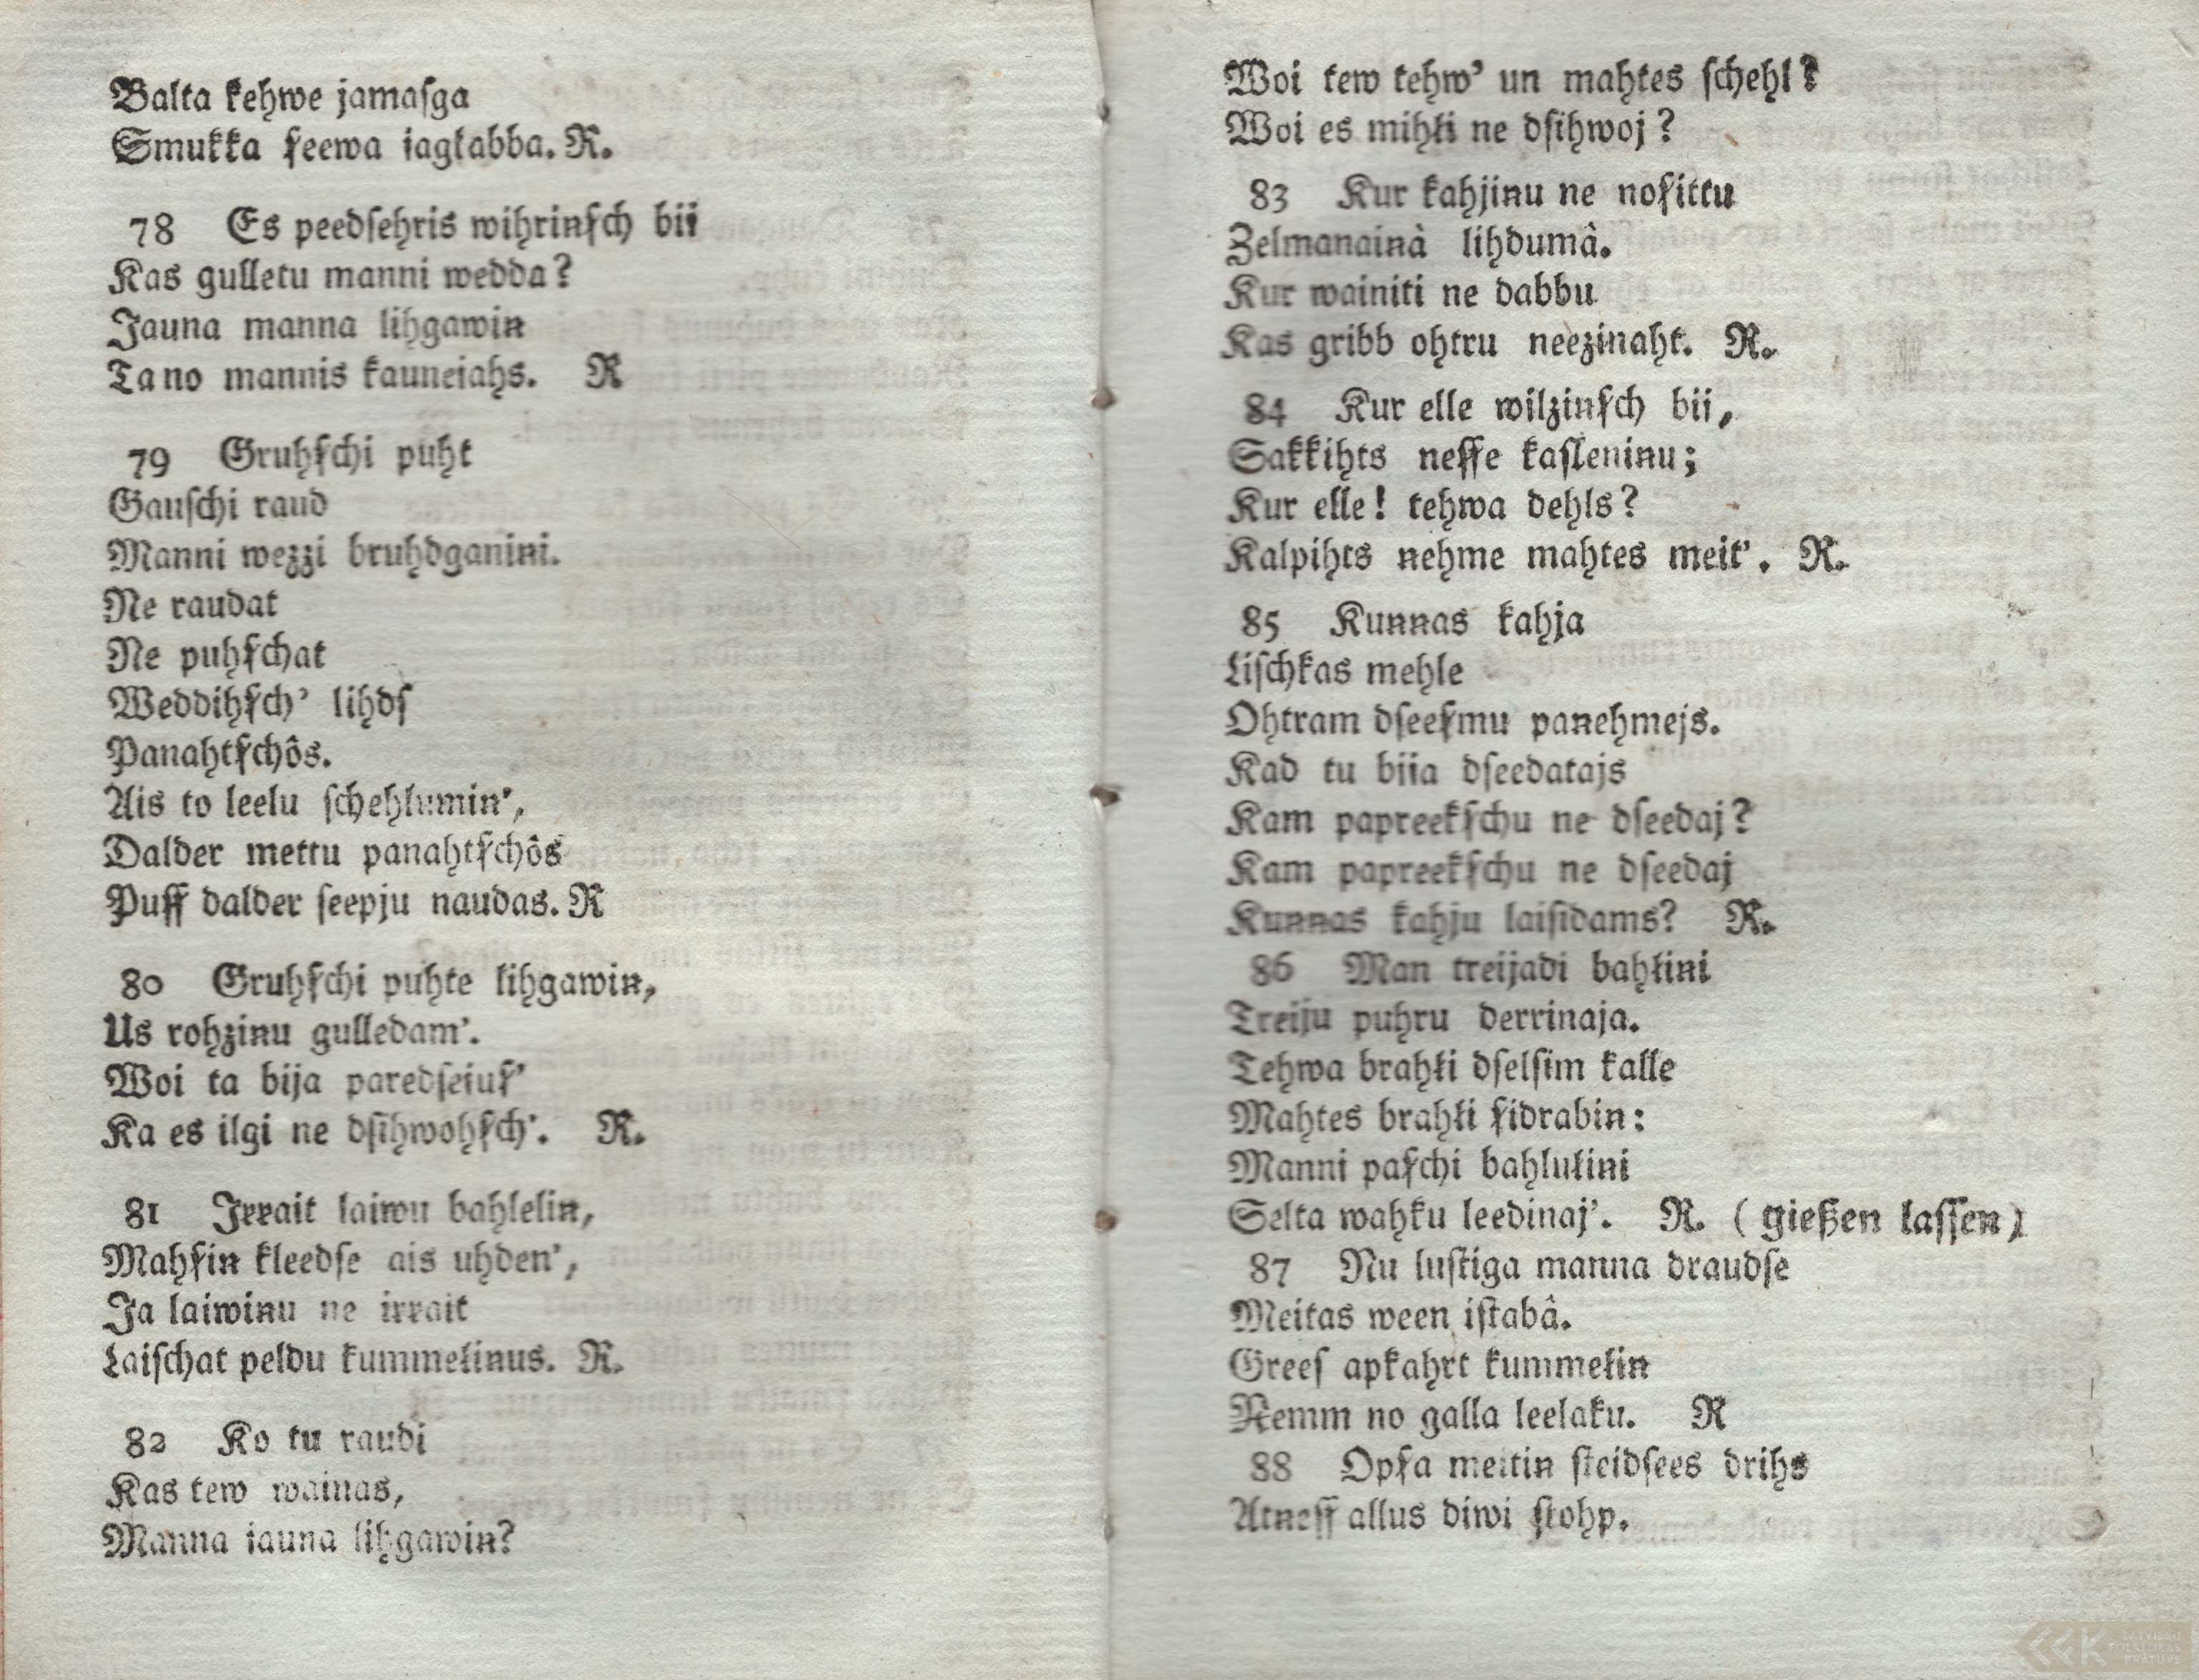 Balta kehwe jamaſga
Smukka ſeewa jagłabba. R.
78 Es peedſehris wihrinſch bii
Kas gulletu manni wedda?
Jauna manna lihgawin
Ta no mannis kauneiahs. R
79 Gruhſchi puht
Gauſchi raud
Manni wezzi bruhdganini.
Ne raudat
Ne puhſchat
Weddihſch’ lihdſ
Panahtſchôs.
Ais to leelu ſchehlumin’,
Dalder mettu panahtſchôs
Puſſ dalder ſeepju naudas. R
80 Gruhſchi puhte lihgawin,
Us rohzinu gulledam’.
Woi ta bija paredſeiuſ’
Ka es ilgi ne dſihwohſch’. R.
81 Irrait laiwu bahlelin,
Mahſin kleedſe ais uhden’,
Ja laiwinu ne irrait
Laiſchat peldu kummełinus. R.
82 Ko tu raudi
Kas tew wainas,
Manna jauna lihgawin?
Woi tew tehw’ un mahtes ſchehl?
Woi es mihłi ne dſihwoj?
83 Kur kahjinu ne noſittu
Zelmanainà lihdumâ.
Kur wainiti ne dabbu
Kas gribb ohtru neezinaht. R.
84 Kur elle wilzinſch bii,
Sakkihts neſſe kaſleninu;
Kur elle! tehwa dehls?
Kalpihts nehme mahtes meit’. R.
85 Kunnas kahja
Liſchkas mehle
Ohtram dſeeſmu panehmejs.
Kad tu biia dſeedatajs
Kam papreekſchu ne dſeedaj?
Kam papreekſchu ne dſeedaj
Kunnas kahju laiſidams? R.
86 Man treijadi bahłini
Treiju puhru derrinaja.
Tehwa brahłi dſelſim kalle
Mahtes brahłi ſidrabin:
Manni paſchi bahlułini
Selta wahku leedinaj’. R. (gießen laſſen)
87 Nu luſtiga manna draudſe
Meitas ween iſtabâ.
Greeſ apkahrt kummełin
Nemm no galla leelaku. R
88 Opſa meitin ſteidſees drihs
Atneſſ allus diwi ſtohp.